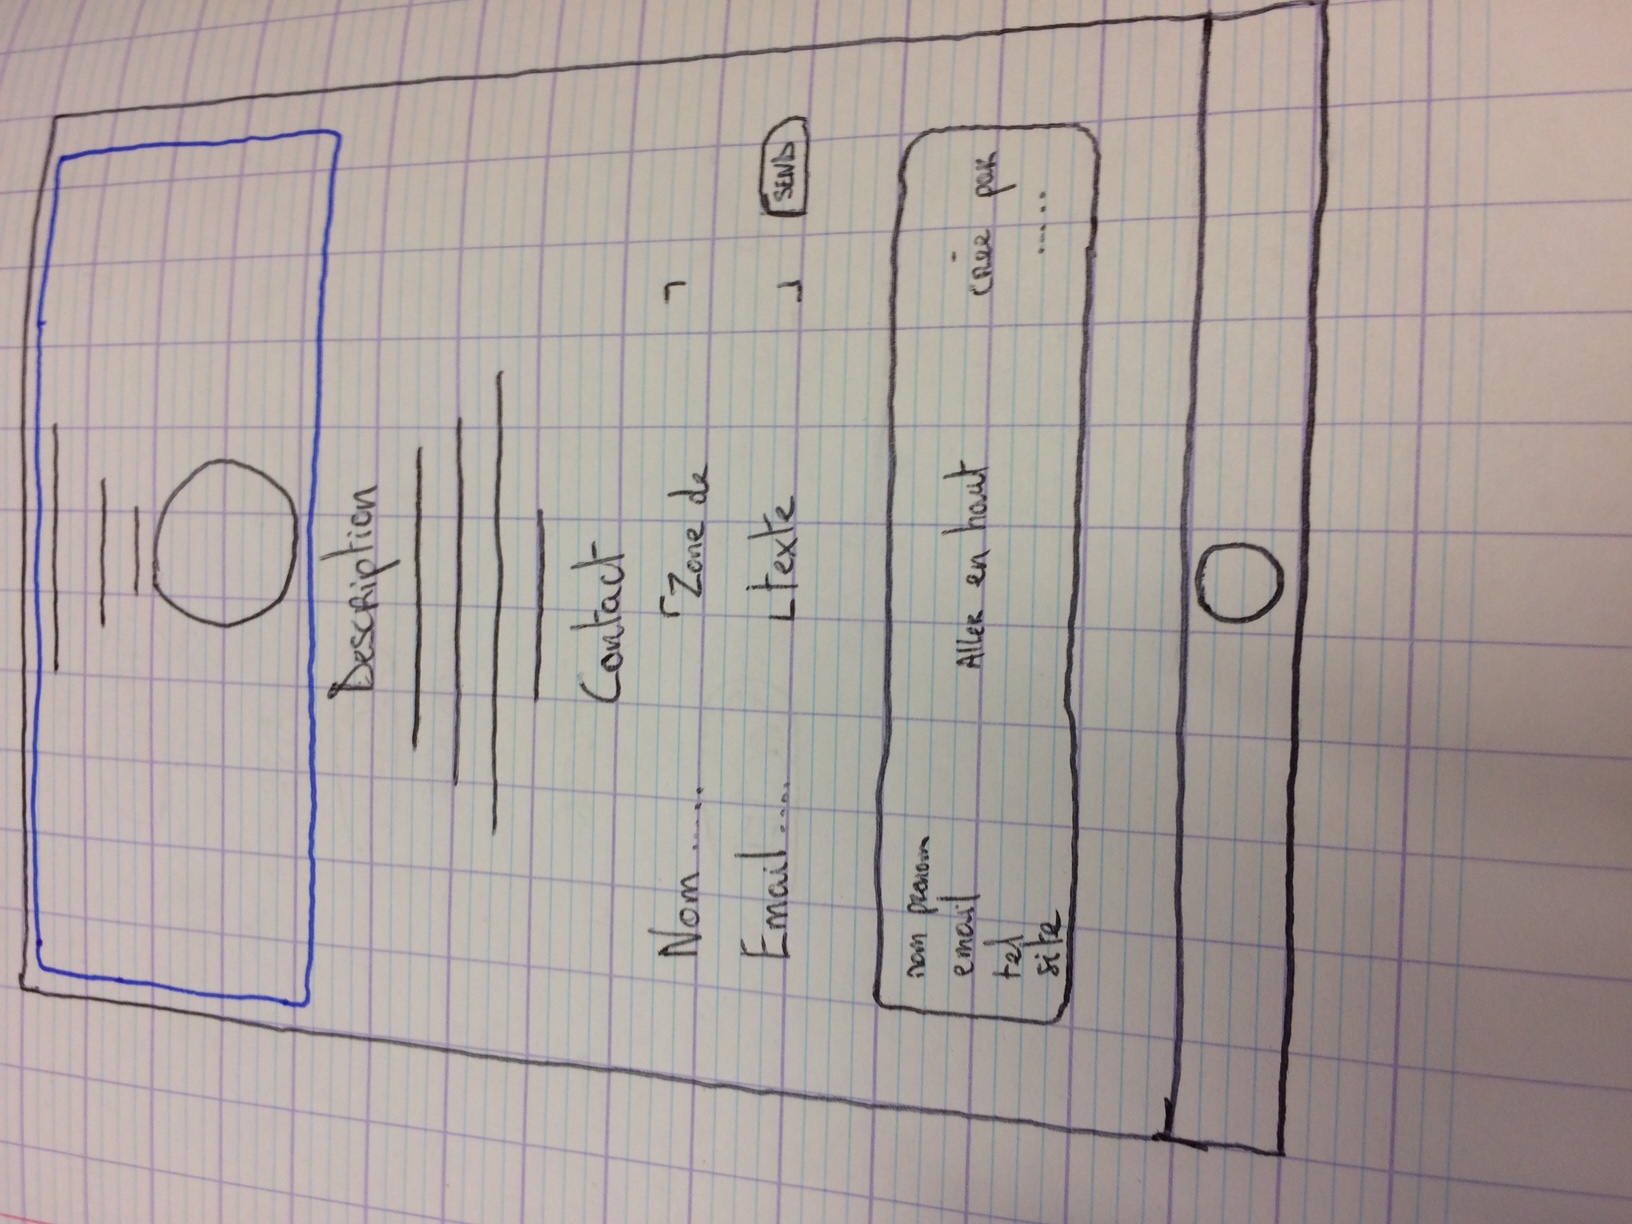 Description
Contact
Nom ..... Zone de
Email .... texte SEND
nom prenom
email
tel
site
Aller en haut
crée par
.....